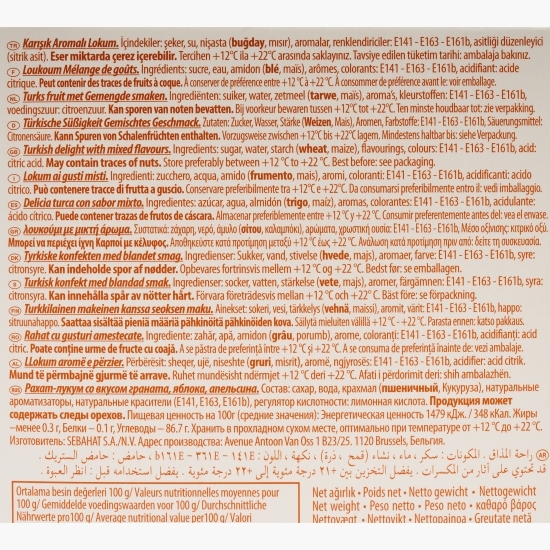 TR Karışık Aromalı Lokum. İçindekiler: şeker, su, nişasta (buğday, mısır), aromalar, renklendiriciler: E141 - E163 - E161b, asitliği düzenleyici
(sitrik asit). Eser miktarda çerez içerebilir. Tercihen +12°C ila +22°C arasında saklayınız. Tavsiye edilen tüketim tarihi: ambalaja bakınız.
F Loukoum Mélange de goûts. Ingrédients: sucre, eau, amidon (blé, maïs), arômes, colorants: E141 - E163 - E161b, acidifiant: acide
citrique. Peut contenir des traces de fruits à coque. À conserver de préférence entre +12 °C à +22 °C. À consommer de préférence avant le: voir emballage.
NL Turks fruit met Gemengde smaken. Ingrediënten: suiker, water, zetmeel (tarwe, maïs), aroma's, kleurstoffen: E141 - E163 - E161b,
voedingszuur: citroenzuur. Kan sporen van noten bevatten. Bij voorkeur bewaren tussen +12°C tot +22°C. Ten minste houdbaar tot: zie verpakking.
Türkische Süßigkeit Gemischtes Geschmack. Zutaten: Zucker, Wasser, Stärke (Weizen, Mais), Aromen, Farbstoffe: E141 - E163 - E161b, Säuerungsmittel:
Citronensäure. Kann Spuren von Schalenfrüchten enthalten. Vorzugsweise zwischen +12°C bis +22°C lagern. Mindestens haltbar bis: siehe Verpackung.
GB Turkish delight with mixed flavours. Ingredients: sugar, water, starch (wheat, maize), flavourings, colours: E141 - E163 - E161b, acid:
citric acid. May contain traces of nuts. Store preferably between +12 °C to +22 °C. Best before: see packaging.
I Lokum ai gusti misti. Ingredienti: zucchero, acqua, amido (frumento, mais), aromi, coloranti: E141 - E163 - E161b, acidificanti: acido
citrico. Può contenere tracce di frutta a guscio. Conservare preferibilmente tra +12°C e +22°C. Da consumarsi preferibilmente entro il: vedi imballaggio.
Delicia turca con sabor mixto. Ingredientes: azúcar, agua, almidón (trigo, maíz), aromas, colorantes: E141 - E163 - E161b, acidulante:
ácido cítrico. Puede contener trazas de frutos de cáscara. Almacenar preferiblemente entre +12 °C y +22 °C. Consumir preferentemente antes del: vea el envase.
λουκούμι με μικτή άρωμα. Συστατικά: ζάχαρη, νερό, άμυλο (σίτου, καλαμπόκι), αρώματα, χρωστική ουσία: E141 - E163 - E161b, Μέσο οξίνισης: κιτρικό οξύ.
Μπορεί να περιέχει ίχνη Καρποί με κέλυφος. Αποθηκεύστε κατά προτίμηση μεταξύ +12°C έως +22°C. Ανάλωση κατά προτίμηση πριν από: δείτε τη συσκευασία.
DK Tyrkiske konfekten med blandet smag. Ingredienser: Sukker, vand, stivelse (hvede, majs), aromaer, farve: E141 - E163 - E161b, syre:
citronsyre. Kan indeholde spor af nødder. Opbevares fortrinsvis mellem +12 °C og +22 °C. Bedst før: se emballagen.
S Turkisk konfekt med blandad smak. Ingredienser: socker, vatten, stärkelse (vete, majs), aromer, färgämnen: E141 - E163 - E161b, syra:
citronsyra. Kan innehålla spår av nötter hårt. Förvara företrädesvis mellan +12°C och +22° C. Bäst före: se förpackning.
Turkkilainen makeinen kanssa seoksen maku. Ainekset: sokeri, vesi, tärkkelys (vehnä, maissi), aromit, värit: E141 - E163 - E161b, happo:
sitruunahappo. Saattaa sisältää pieniä määriä pähkinöitä pähkinöiden kova. Säilytä mieluiten välillä +12°C - +22 °C. Parasta ennen: katso pakkaus.
Rahat cu gusturi amestecate. Ingrediente: zahăr, apă, amidon (grâu, porumb), arome, coloranți: E141 - E163 - E161b, acidifiant: acid
citric. Poate conține urme de fructe cu coajă. A se păstra de preferință între +12 °C și +22 °C. A se consuma de preferință înainte de: vezi ambalaje.
AL Llokum aromë e përzier. Përbërësit: sheqer, ujë, niseshte (gruri, misrit), aromë, ngjyrosës: E141 - E163 - E161b, acidifier: acid citrik.
Mund të përmbajnë gjurmë të arrave. Ruhet mundësisht ndërmjet +12 °C deri +22 °C. Afati i përdorimit deri: shih ambalazhën.
Рахат-лукум со вкусом граната, яблока, апельсина. Состав: сахар, вода, крахмал (пшеничный, Кукуруза), натуральные
ароматизаторы, натуральные красители (E141, E163, E161b), регулятор кислотности: лимонная кислота. Продукция может
содержать следы орехов. Пищевая ценность на 100г (средние значения): Энергетическая ценность 1479 кДж. / 348 кКал. Жиры
–менее 0.3 г, Белки – 0.1 г, Углеводы – 86.7 г. Хранить в прохладном сухом месте, оптимально при температуре от +12 °C до +22 °C.
Изготовитель: SEBAHAT S.A./N.V. Адрес производства: Avenue Antoon Van Oss 1 B23/25. 1120 Brussels, Бельгия.
راحة المذاق. المكونات: سكر، ماء، نشاء (قمح، ذرة)، نكهة، اللون: E141 - E163 - E161b، حامض: حامض الستريك.
قد تحتوي على آثار من المكسرات. يفضل التخزين بين +١٢ درجة مئوية إلى +٢٢ درجة مئوية. يفضل استخدامه قبل: انظر العبوة.
Ortalama besin değerleri 100 g/ Valeurs nutritionnelles moyennes pour
100 g/ Gemiddelde voedingswaarden voor 100 g/ Durchschnittliche
Nährwerte pro100 g/ Average nutritional value per100 g/ Valori
Net ağırlık • Poids net • Netto gewicht • Nettogewicht
Net weight • Peso netto • Peso neto • καθαρό βάρος
Nettovægt • Nettovikt • Nettopaino • Greutate netă